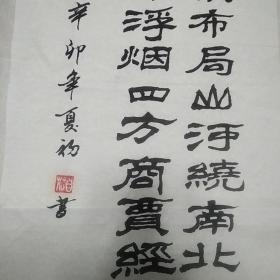 布局山河繞南北
浮烟四方商賈經
辛卯年夏初
書